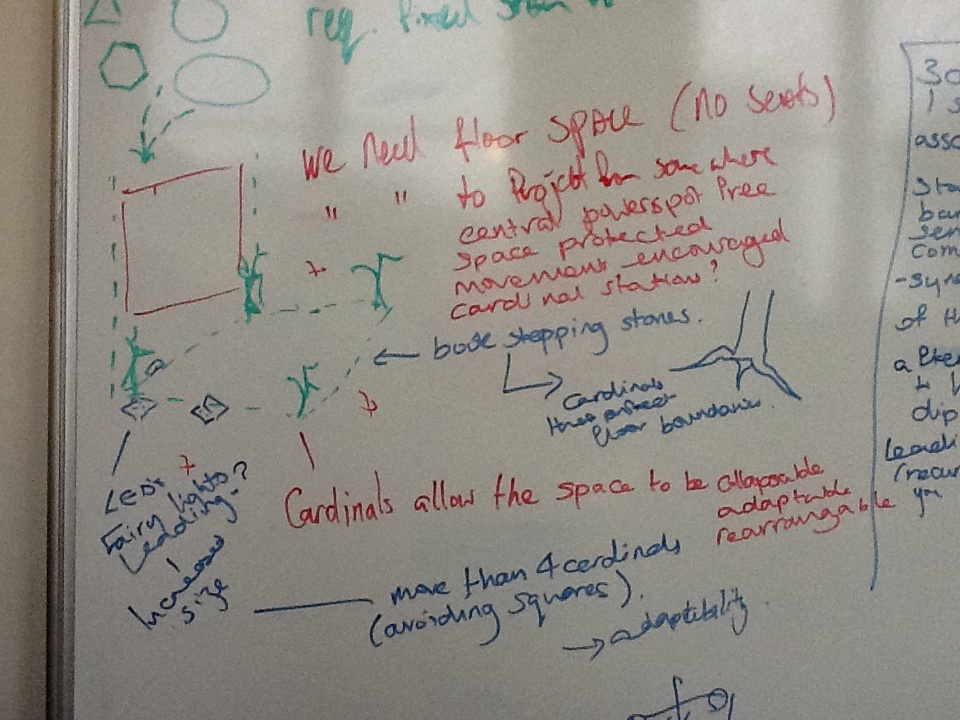 req. fixed
we need floor space (no seats)
" " to Project from somewhere
central powerspot free
space protected
movement encouraged
cardinal station?
book stepping stones.
Cardinals
floor boundaries.
LEDs
Fairy lights?
Leading?
Increased
size
Cardinals allow the space to be collapsable
adaptable
rearrangable
more than 4 cardinals
(avoiding squares).
→ adaptibility
30
1 s
asso
Sta
ban
sen
com
-sync
of th
dip
(recur
you